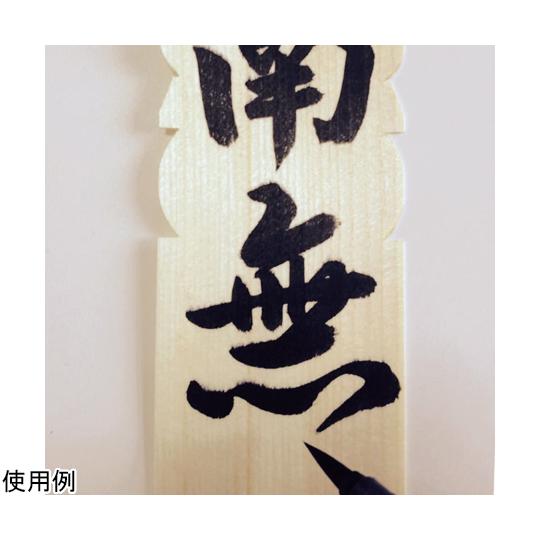 南無
使用例